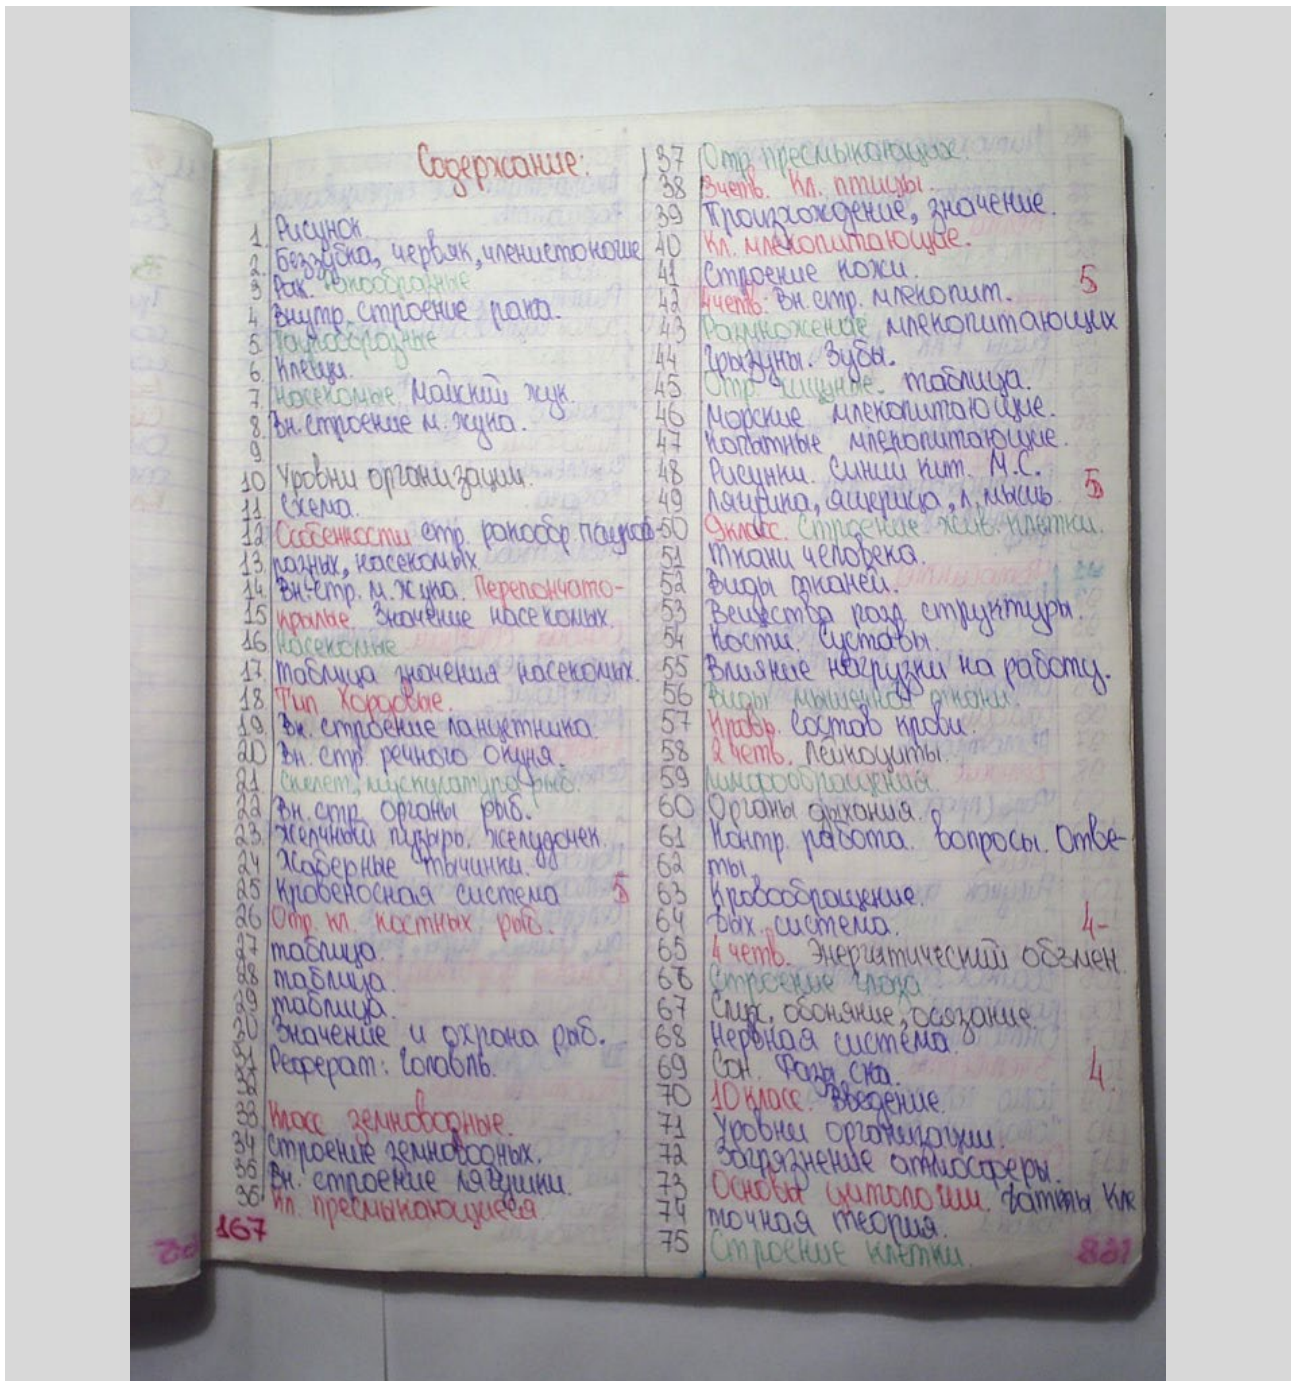 Содержание:
1. Рисунок.
2. Беззубка, червяк, членистоногие
3 Рак. Ракообразные
4. Внутр. строение рака.
5. Паукообразные
6. Клещи.
7. Насекомые. Майский жук.
8. Вн. строение м. жука.
9
10 Уровни организации.
11 Схема.
12 Особенности стр. ракообр. паукоб-
13. разных, насекомых.
14. Вн. стр. м. жука. Перепончато-
15 крылые. Значение насекомых.
16 Насекомые
17. таблица значения насекомых.
18 Тип Хордовые.
19. Вн. строение ланцетника.
20 Вн. стр. речного окуня.
21 Скелет, мускулатура рыб.
22 Вн. стр. органы рыб.
23. Желчный пузырь. желудочек.
24 Жаберные тычинки.
25 Кровеносная система 5
26 Отр. кл. костных рыб.
27 таблица.
28 таблица.
29 таблица.
30 Значение и охрана рыб.
31 Реферат: Голавль.
32
33 Класс земноводные.
34 Строение земноводных.
35 Вн. строение лягушки.
36 Кл. пресмыкающиеся
167
37 Отр. пресмыкающих.
38 3четв. Кл. птицы.
39 Происхождение, значение.
40 Кл. млекопитающие.
41 Строение кожи. 5
42 4четв. Вн. стр. млекопит.
43 Размножение млекопитающих
44 Грызуны. Зубы.
45 Отр. хищные. таблица.
46 Морские млекопитающие.
47 Копытные млекопитающие.
48 Рисунки. Синий кит. М.С.
49 Лягушка, ящерица, л. мышь 5
50 9класс. Строение жив. клетки.
51 Ткани человека.
52 Виды тканей.
53 Вещества разд. структуры.
54 Кости. Суставы.
55 Влияние нагрузки на работу.
56 Виды мышечной ткани.
57 Кровь. Состав крови.
58 2 четв. Лейкоциты.
59 Лимфообращения.
60 Органы дыхания.
61 Контр. работа. Вопросы. Отве-
62 ты.
63 Кровообращение.
64 Дых. система. 4-
65 4 четв. Энергитический обзмен.
66 Строение глаза
67 Слух, обоняние, осязание.
68 Нервная система.
69 Сон. Фазы сна. 4
70 10 класс. Введение.
71 Уровни организации.
72 Загрязнение атмосферы.
73 Основы цитологии. Кле
74 точная теория.
75 Строение клетки.